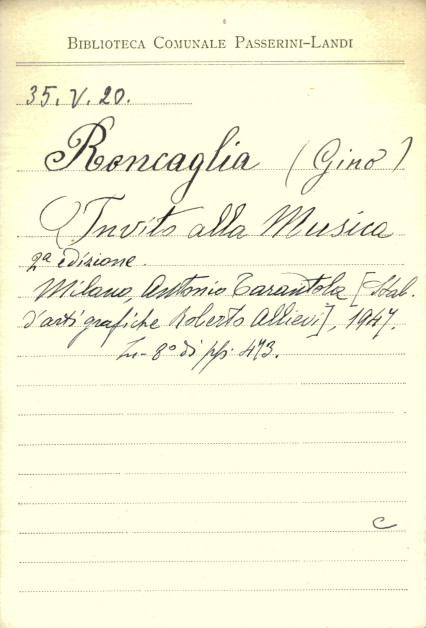 BIBLIOTECA COMUNALE PASSERINI-LANDI
35. V. 20.
Roncaglia (Gino)
Invito alla Musica
2a edizione.
Milano, Antonio Tarantola [Stab.
d'arti grafiche Roberto Allievi], 1947.
In-8° di pp. 473.
C